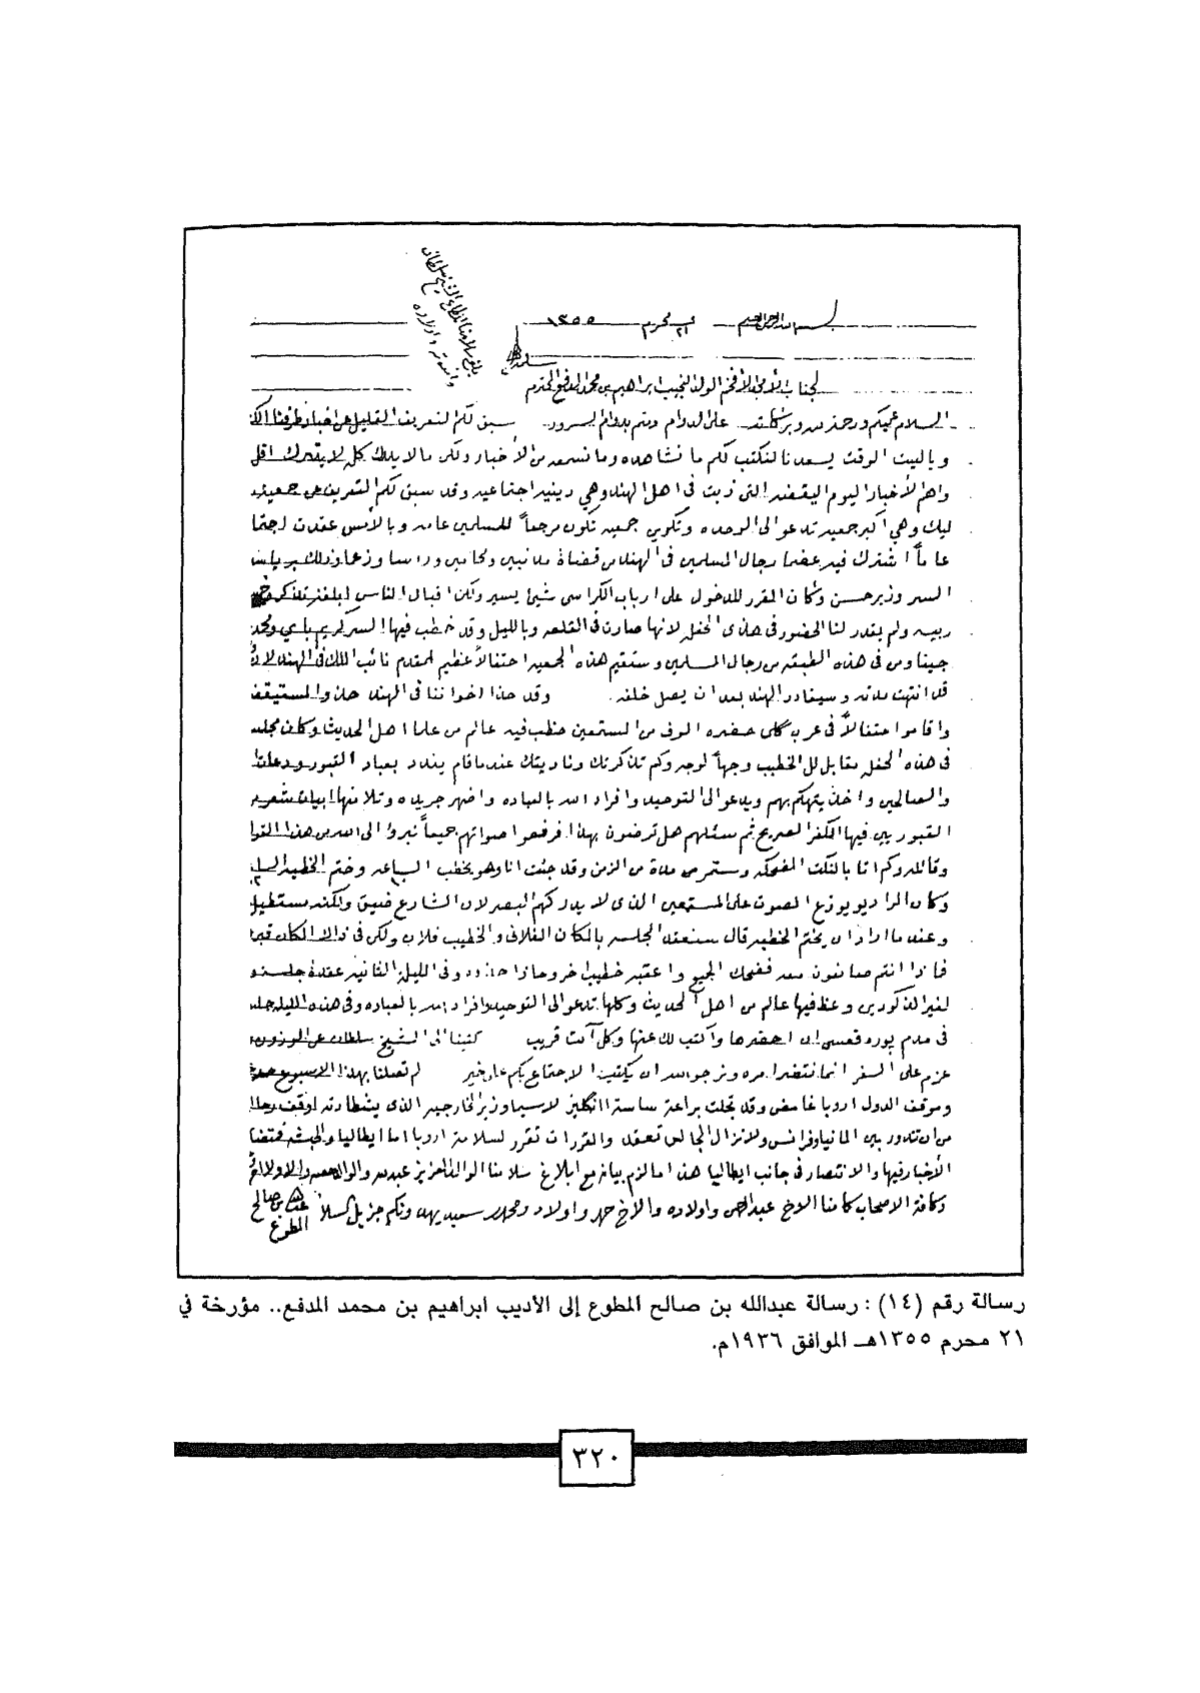 بسم الله الرحمن الرحيم ٢١ محرم ١٣٥٥
بلغ سلامنا الشيخ سلطان
واخوته واولاده
لجناب الأمجد الأفخم الولد النجيب ابراهيم بن محمد المدفع المحترم
السلام عليكم ورحمة الله وبركاته على الدوام ودمتم بدوام السرور سبق لكم التعريف القليل عن اخبار طرفنا
وياليت الوقت يسعدنا لنكتب لكم ما نشاهده وما نسمعه من الأخبار ولكن ما لا يدرك كله لا يترك اقل
واهم الأخبار اليوم اليقضه التي دبت في اهل الهند وهي دينيه اجتماعيه وقد سبق لكم التعريف عن جمعية
ليك وهي اكبر جمعيه تدعو الى الوحده وتكوين جمعيه تكون مرجعاً للمسلمين عامه وبالأمس عقدت اجتما
عاماً اشترك فيه عضما رجال المسلمين في الهند من قضاة مدنيين ومحامين وراسا وزعما وذلك برياست
السر وزير حسن وكان المقرر للدخول على ارباب الكراسي شيئ يسير ولكن اقبال الناس ابلغ تذكره
ربيه ولم يقدر لنا الحضور في هذي الحفل لانها صارت في القلعه وبالليل وقد خطب فيها السر كريم باي ومحمد
جينا ومن في هذه الطبقه من رجال المسلمين وستقيم هذه الجمعيه احتفالاً عظيم لمقدم نائب الملك في الهند لان
قد انتهت مدته وسيغادر الهند بعد ان يصل خلفه وقد حذا اخواننا في الهند حذو المستيقضـ
واقاموا احتفالاً في عرب گلي حضره الوف من المستمعين خطب فيه عالم من علما اهل الحديث وكان مجلسه
في هذه الحفله مقابل للخطيب وجهاً لوجه وكم تذكرتك وناديتك عندما قام يندد بعباد القبور ودعات
والصالحين واخذ يتهكم بهم ويدعو الى التوحيد وافراد الله بالعباده واضهر جريده وتلا منها ابيات شعريه
القبوريين فيها الكفر الصريح ثم سئلهم هل ترضون بهذا فرفعوا اصواتهم جميعاً نبرؤ الى الله من هذا القو
وقائله وكم اتا بالنكت المضحكه وستمر مده من الزمن وقد جئت انا وهو يخطب الساعه ١٠ وختم الخطبه الساعه ٢
وكان الراديو يوزع الصوت على المستمعين الذي لا يدركهم البصر لان الشارع ضيق ولكنه مستطيل
وعند ما اراد ان يختم الخطبه قال سنعقد الجلسه بالمكان الفلاني والخطيب فلان ولكن في ذلك المكان قبر
فماذا انتم صانعون معه فضحك الجميع واعتبره خطيباً اخر وماذا وفي الليلة الثانيه عقدة جلسه
لغير المذكورين وعظ فيها عالم من اهل الحديث وكلها تدعو الى التوحيد وافراد الله بالعباده وفي هذه الليله جلسه
في مدم پوره فعسى ان احضرها واكتب لك عنها وكل آت قريب كتبنا الى الشيخ سلطان عن
عزم على السفر انما ننتضر امره ونرجو الله ان يكتب لنا الاجتماع بكم على خير لم تصلنا بهذا الاسبوع
وموقف الدول اروبا غامض وقد تجلت براعة ساسة انگليز لاسيما وزير الخارجيه الذي بشطارته اوقف
من ان تتدور بين المانيا وفرانس ولا تزال المجالس تعقد والقررات تقرر لسلامة اروبا اما ايطاليا والحبشه
الأخبار فيها والانتصار في جانب ايطاليا هذا ما لزم بيانه مع ابلاغ سلامنا الوالد العزيز عبدالله والوالد والاولاد
وكافة الاصحاب كما منا الاخ عبدالرحمن واولاده والاخ حمد واولاده ومحمد سعيد يهدونكم جزيل السلا
عبدالله بن صالح
المطوع
رسالة رقم (١٤) : رسالة عبدالله بن صالح المطوع إلى الأديب ابراهيم بن محمد المدفع.. مؤرخة في
٢١ محرم ١٣٥٥هـ الموافق ١٩٣٦م.
٣٢٠